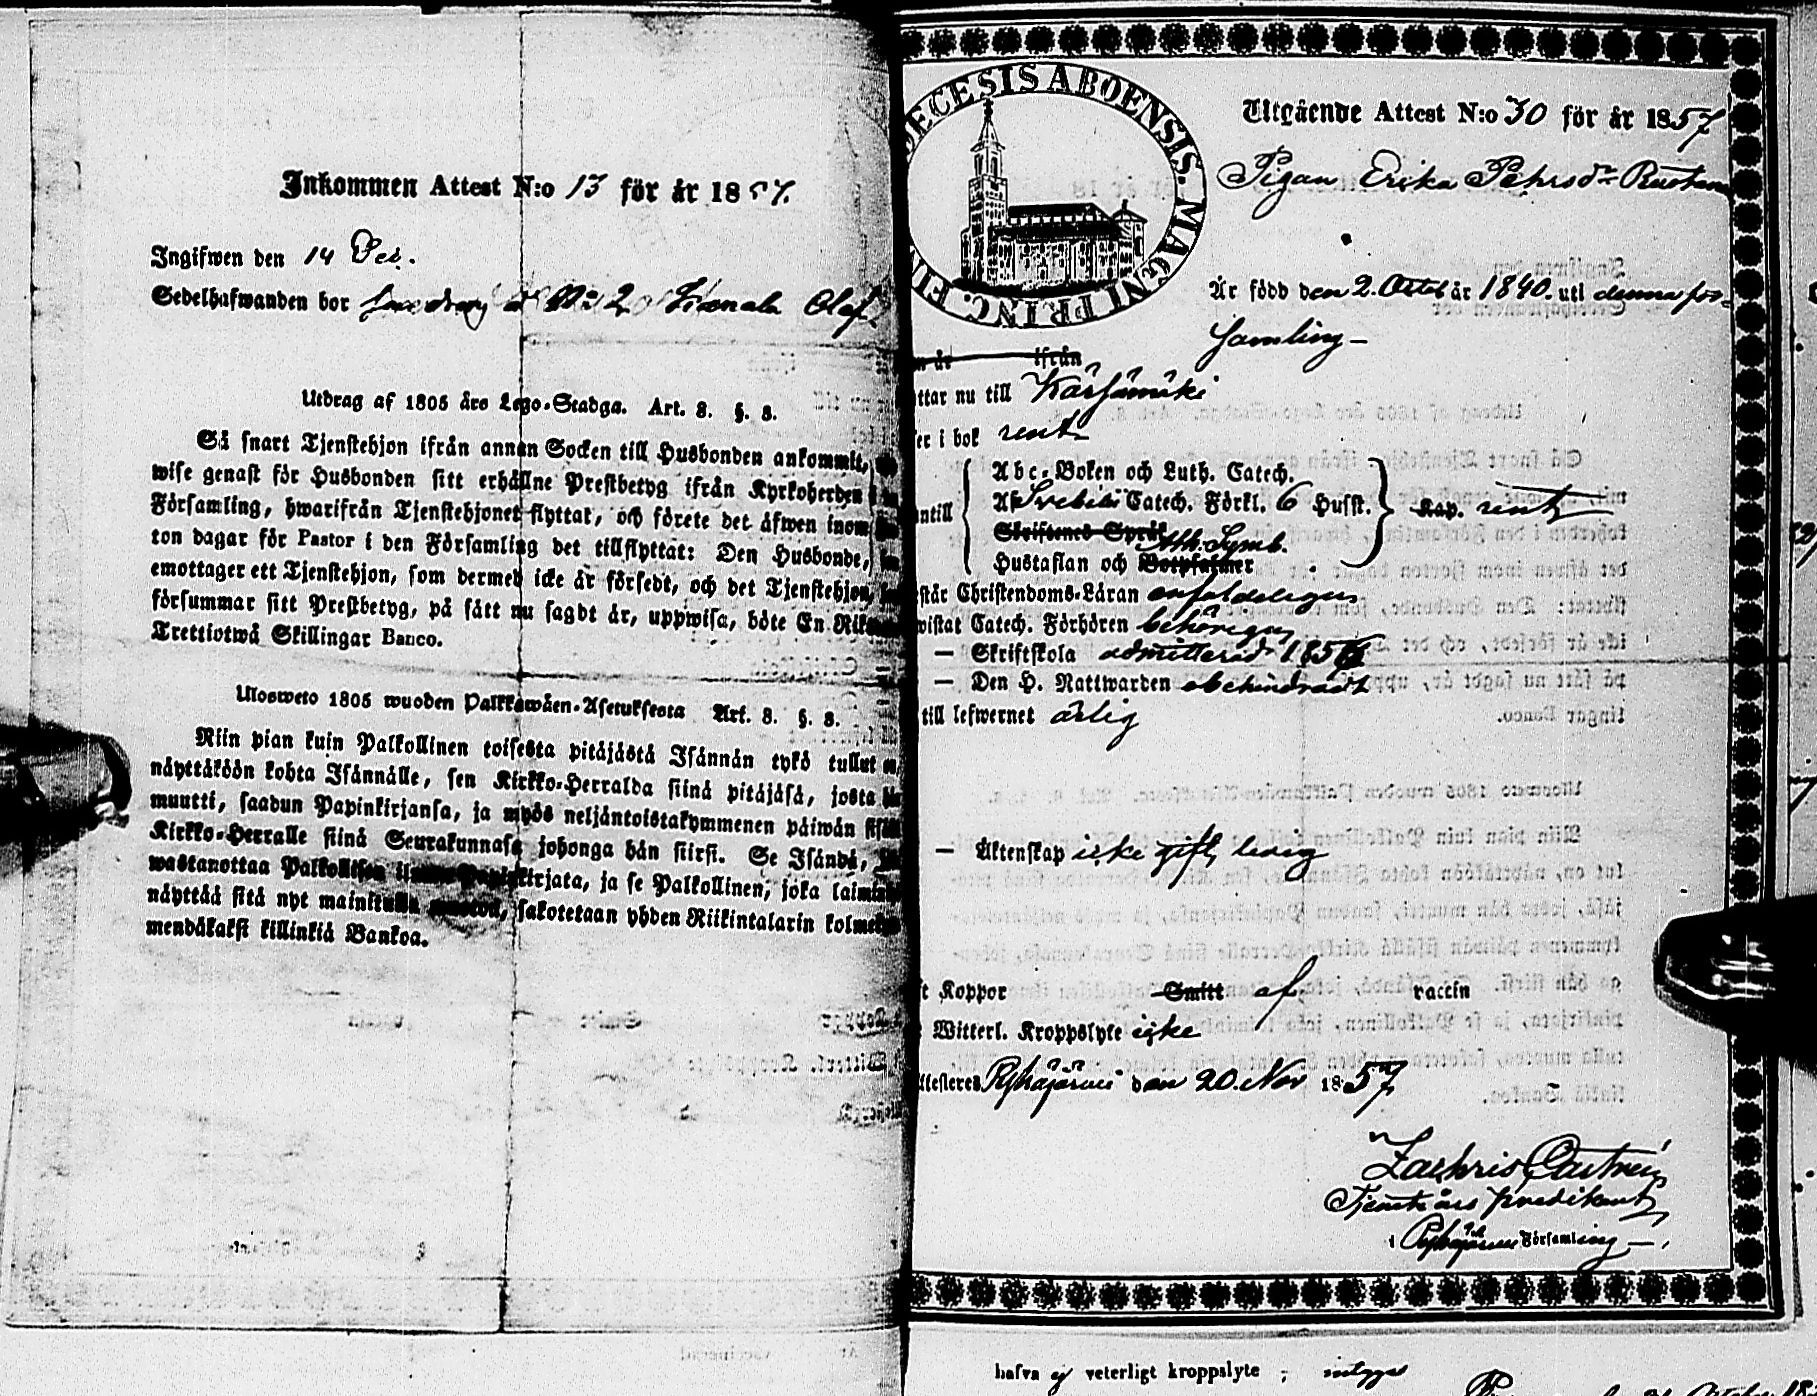 Inkommen Attest N:o 13 för år 1857.
Ingifwen den 14 Dec.
Sedelhafwanden bor N:o 2 Olof
Utdrag af 1805 års Lego-Stadga. Art. 8. §. 8.
Så snart Tjenstehjon ifrån annan Socken till Husbonden ankommit,
wise genast för Husbonden sitt erhållne Prestbetyg ifrån Kyrkoherden i
Församling, hwarifrån Tjenstehjonet flyttat, och förete det äfwen inom
ton dagar för Pastor i den Församling det tillflyttat: Den Husbonde,
emottager ett Tjenstehjon, som dermed icke är försedt, och det Tjenstehjon,
försummar sitt Prestbetyg, på sätt nu sagdt är, uppwisa, böte En Riks
Trettiotwå Skillingar Banco.
Ulosweto 1805 wuoden Palkkawäen-Asetuksesta Art. 8. §. 8.
Niin pian kuin Palkollinen toisesta pitäjästä Isännän tykö tullut
näyttäköön kohta Isännälle, sen Kirkko-Herralda siinä pitäjäsä, josta
muutti, saadun Papinkirjansa, ja myös neljäntoistakymmenen päiwän sisäl
Kirkko-Herralle siinä Seurakunnasa johonga hän siirsi. Se Isändä,
wastanottaa Palkollisen ilman Papinkirjata, ja se Palkollinen, joka laimin
näyttää sitä nyt mainitulla muodon, sakotetaan yhden Riikintalarin kolme
mendäkaksi killinkiä Bankoa.
DECESIS ABOENSIS. MAGNI PRINC. FIN
Utgående Attest N:o 30 för år 1857
Pigan Erika Pehrsdr
Är född den 2. Octob år 1840. uti denna för-
samling –
n år ifrån
ttar nu till Kärsämäki
er i bok rent
Abc-Boken och Luth. Catech.
Af Svebilii Catech. Förkl. 6 Hufst.
antill
Kap. rent
Skriftenes Språk
Ath. Symb.
Hustaflan och Botpsalmer
står Christendoms-Läran enfaldeligen
wistat Catech. Förhören behörigen
— Skriftskola admitterad 1856
— Den H. Nattwarden obehindradt
till lefwernet ärlig
— Äktenskap icke gift, ledig
t Koppor Smitt af vaccin
Witterl. Kroppslyte icke
ttesteres Pyhäjärvi den 20. Nov 1857
Zachris Castrén
Tjensteårs predikant
i Pyhäjärvi Församling –
hafva ej veterligt kroppslyte ;